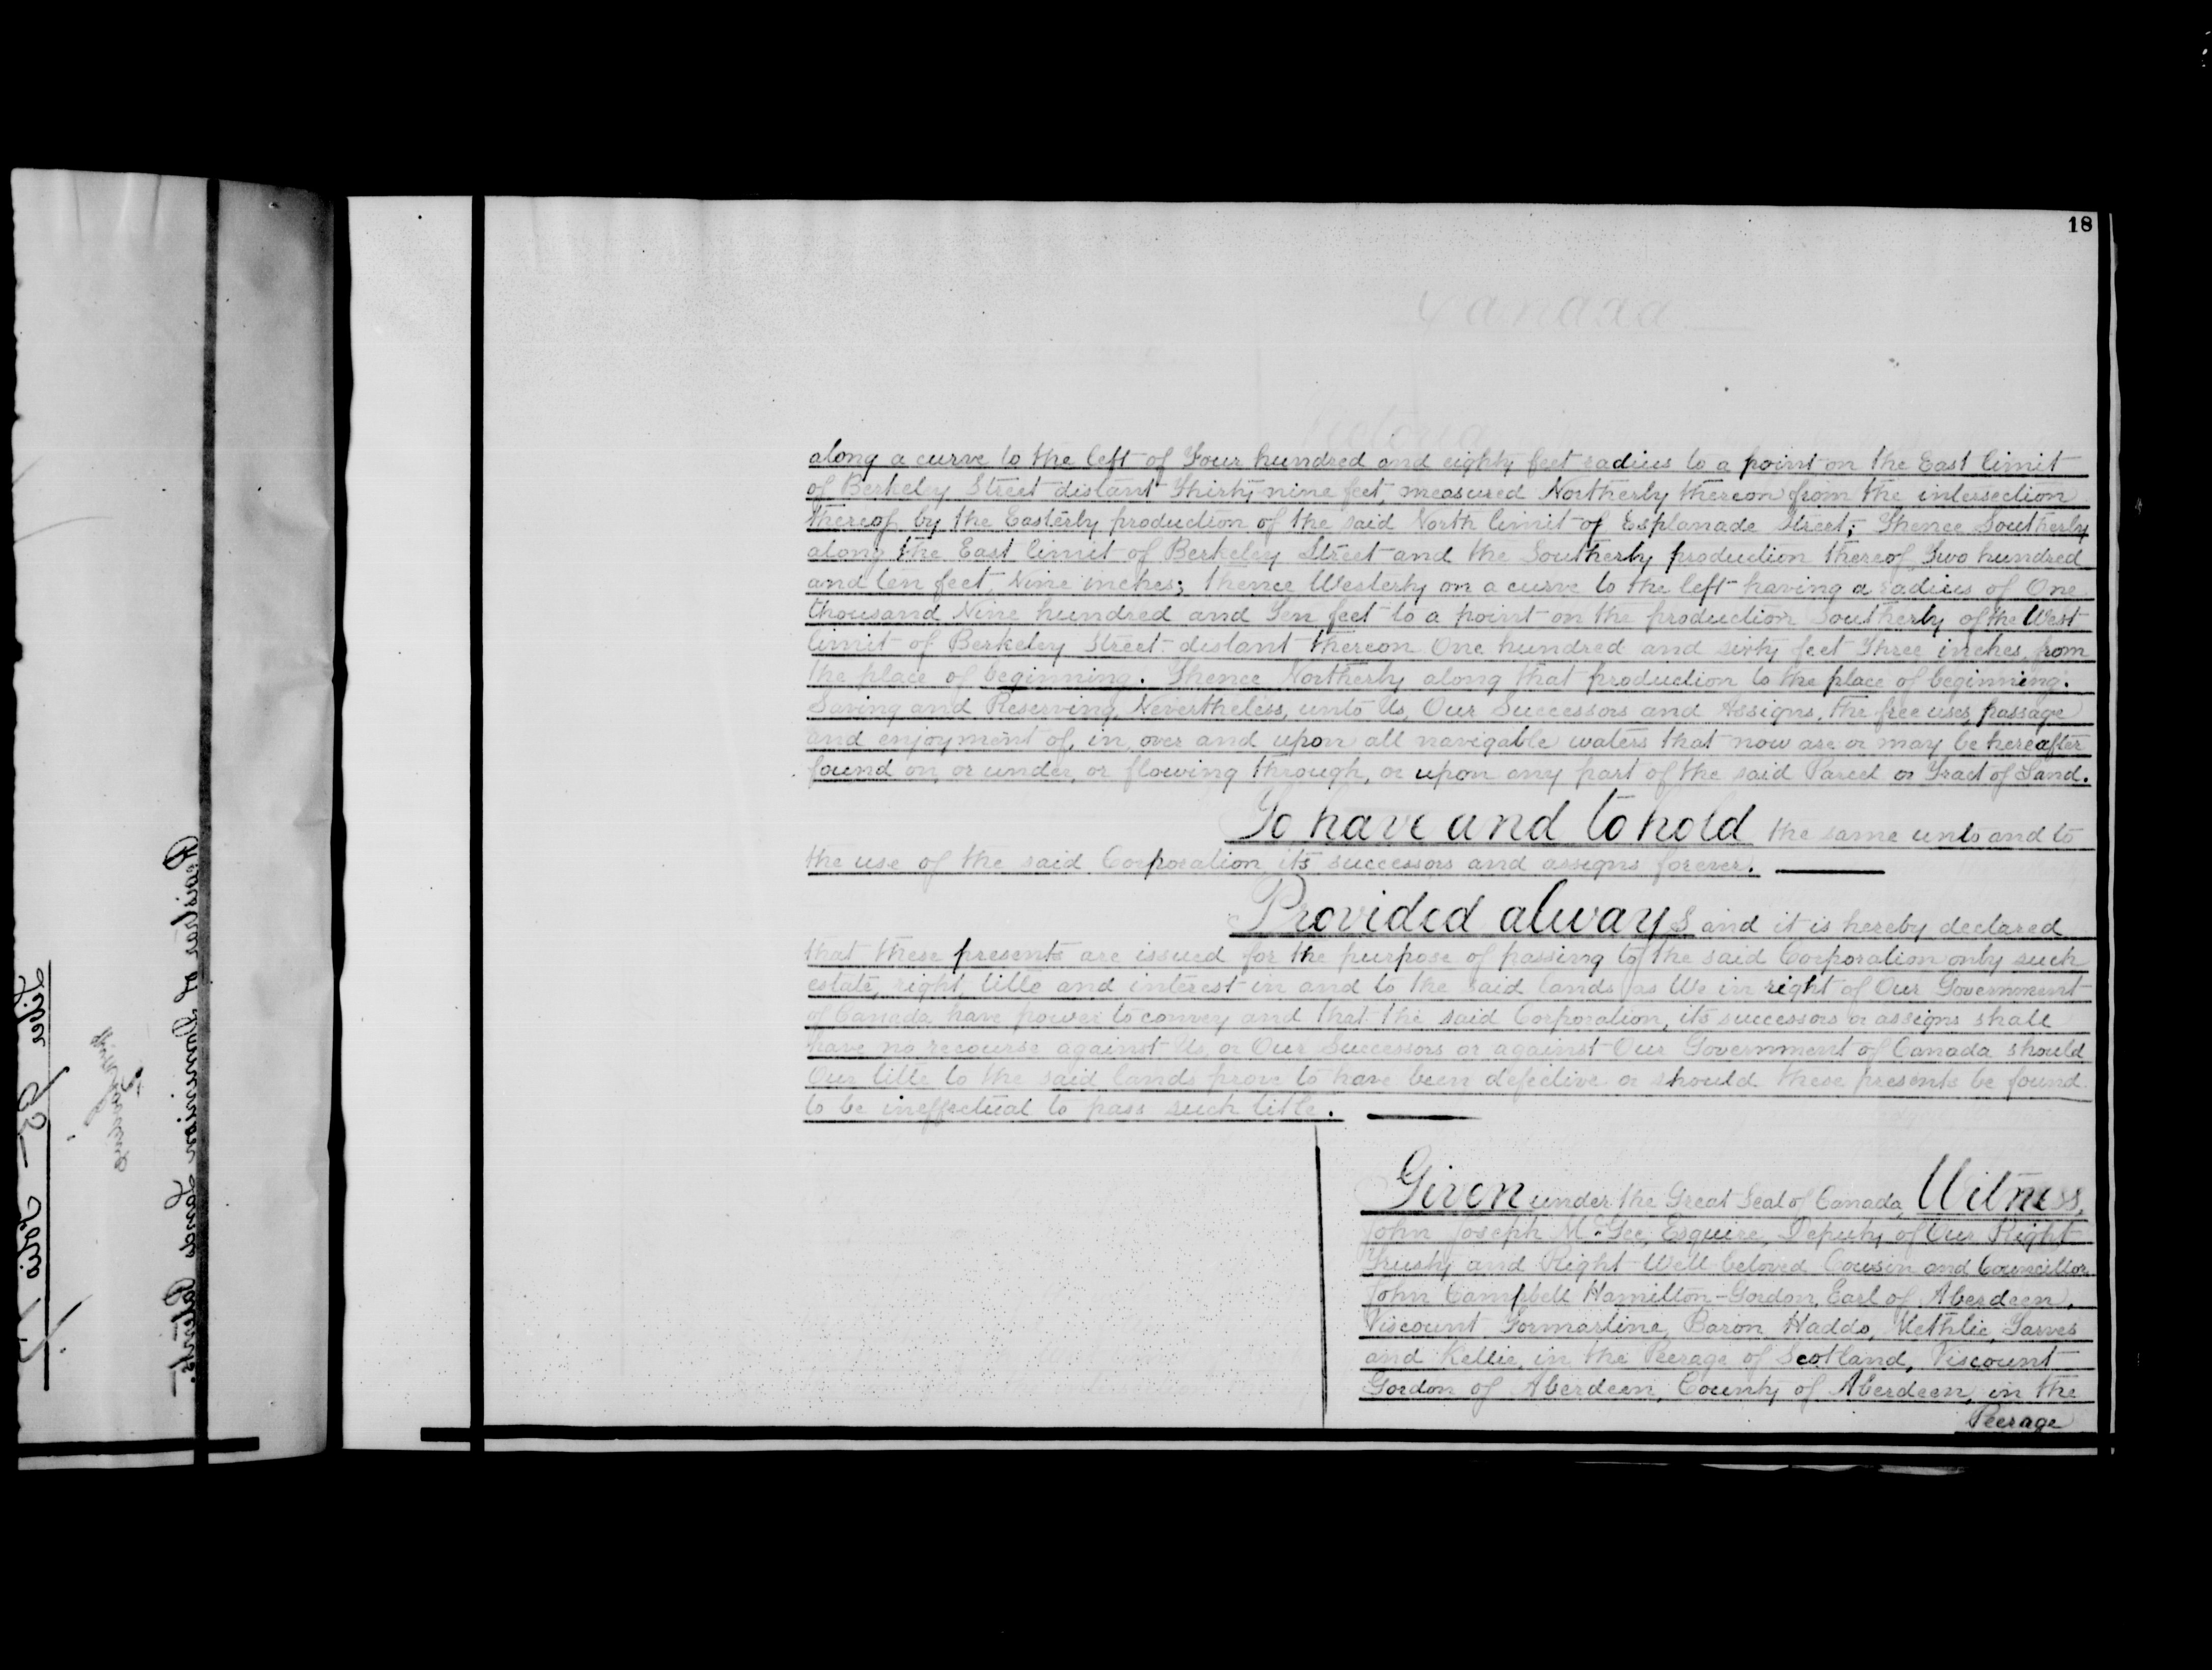 18
along a curve to the left of Four hundred and eighty feet radius to a point on the East limit
of Berkeley Street distant Thirty nine feet, measured Northerly thereon from the intersection
thereof by the Easterly production of the said North limit of Esplanade Street; Thence Southerly
along the East limit of Berkeley Street and the Southerly production thereof Two hundred
and ten feet Nine inches; thence Westerly on a curve to the left having a radius of One
thousand Nine hundred and Ten feet to a point on the production Southerly of the West
limit of Berkeley Street distant thereon One hundred and sixty feet Three inches from
the place of beginning. Thence Northerly along that production to the place of beginning.
Saving and Reserving, Nevertheless, unto Us, Our Successors and Assigns, the free uses, passage
and enjoyment of, in, over and upon all navigable waters that now are or may be hereafter
found on, or under, or flowing through, or upon any part of the said Parcel or Tract of Land.
To have and to hold the same unto and to
the use of the said Corporation its successors and assigns forever.
Provided always and it is hereby declared
that these presents are issued for the purpose of passing to the said Corporation only such
estate, right, title and interest in and to the said lands as We in right of Our Government
of Canada have power to convey and that the said Corporation, its successors or assigns shall
have no recourse against Us, or Our Successors or against Our Government of Canada should
Our title to the said lands prove to have been defective or should these presents be found
to be ineffectual to pass such title.
Given under the Great Seal of Canada, Witness,
John Joseph McGee, Esquire, Deputy of Our Right
Trusty and Right Well beloved Cousin and Councillor
John Campbell Hamilton-Gordon, Earl of Aberdeen,
Viscount Formartine, Baron Haddo, Methlic, Tarves
and Kellie, in the Peerage of Scotland, Viscount
Gordon of Aberdeen, County of Aberdeen, in the
Peerage
Registrar of Dominion Lands Patents.
Liber 95 Folio 17